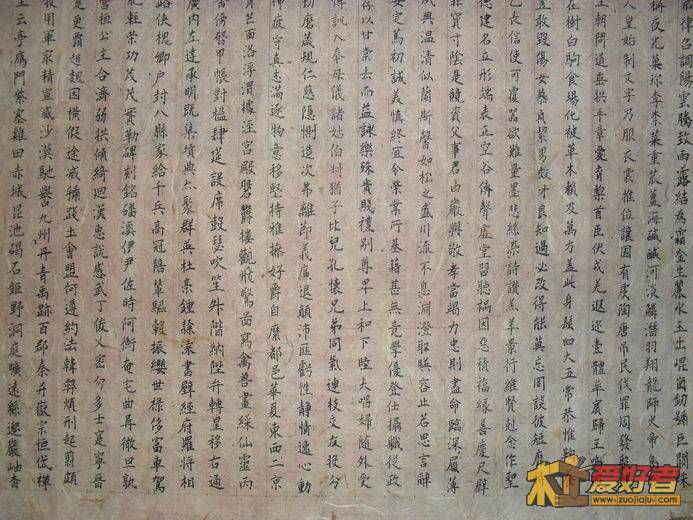 律召調陽雲騰致雨露結為霜金生麗水玉出崑岡劍號巨闕珠
稱夜光菓珍李柰菜重芥薑海鹹河淡鱗潛羽翔龍師火帝鳥
人皇始制文字乃服衣裳推位讓國有虞陶唐吊民伐罪周發殷
坐朝問道垂拱平章愛育黎首臣伏戎羌遐邇壹體率賓歸王鳴
在樹白駒食場化被草木賴及萬方蓋此身髮四大五常恭惟鞠
豈敢毀傷女慕貞潔男效才良知過必改得能莫忘罔談彼短靡
己長信使可覆器欲難量墨悲絲染詩讚羔羊景行維賢尅念作聖
德建名立形端表正空谷傳聲虛堂習聽禍因惡積福緣善慶尺璧
非寶寸陰是競資父事君曰嚴與敬孝當竭力忠則盡命臨深履薄
夙興溫凊似蘭斯馨如松之盛川流不息淵澄取暎容止若思言辭
安定篤初誠美慎終宜令榮業所基藉甚無竟學優登仕攝職從政
存以甘棠去而益詠樂殊貴賤禮別尊卑上和下睦夫唱婦隨外受
傅訓入奉母儀諸姑伯叔猶子比兒孔懷兄弟同氣連枝交友投分
切磨箴規仁慈隱惻造次弗離節義廉退顛沛匪虧性靜情逸心動
神疲守真志滿逐物意移堅持雅操好爵自縻都邑華夏東西二京
背芒面洛浮渭據涇宮殿磐鬱樓觀飛驚圖寫禽獸畫綵仙靈丙
舍傍啓甲帳對楹肆筵設席鼓瑟吹笙階納陛轉右通
廣內左達承明既集墳典亦聚群英杜稾鍾隸漆書壁經府羅將相
路俠槐卿户封八縣家給千兵高冠陪輦驅轂振纓世祿侈富車駕
肥輕策功茂勒碑刻銘磻溪伊尹佐時阿衡奄宅曲阜微旦孰
營桓公合濟弱扶傾綺迴漢惠說感武丁俊乂密勿多士寔寧晉
楚更霸趙魏困橫假途滅虢踐土會盟何遵約法韓弊煩刑起翦頗
牧用軍冣精宣威沙漠馳譽九州丹青禹跡百郡秦并嶽宗恒岱禪
主云亭雁門紫塞雞田赤城昆池碣石鉅野洞庭曠遠緜邈巖岫杳
爱好者
www.zuojiaju.com